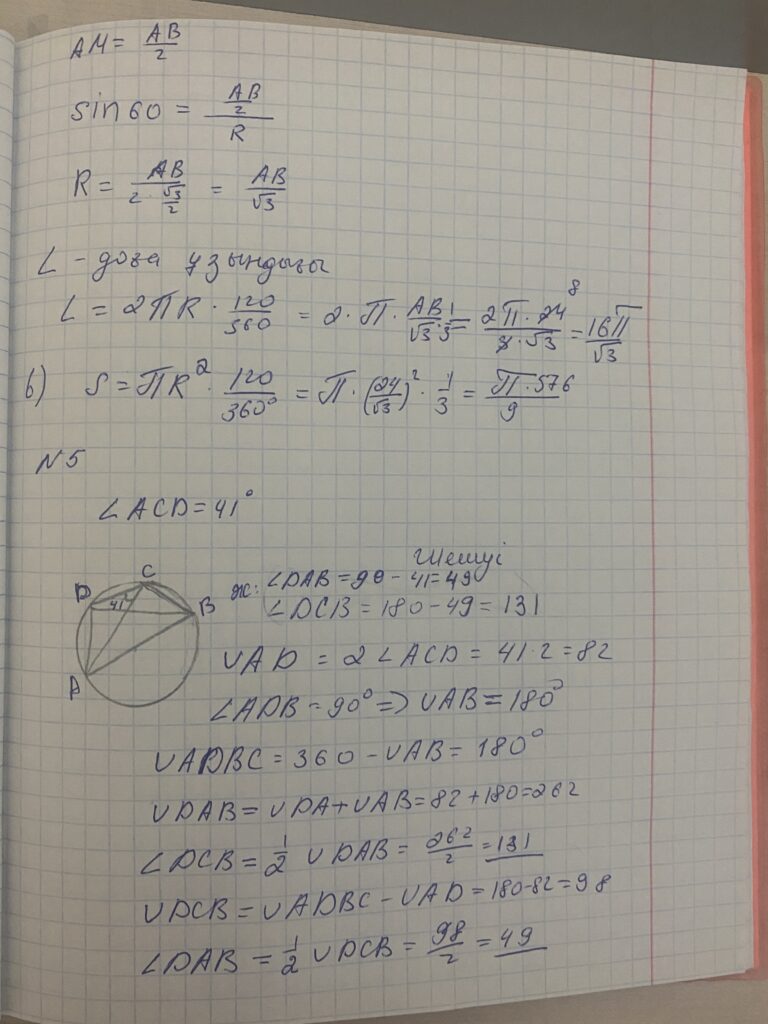 AM = AB/2
sin 60 = (AB/2)/R
R = AB/(2·√3/2) = AB/√3
L - доға ұзындығы
L = 2ПR · 120/360 = 2·П· AB/√3 · 1/3 = 2П·24/3·√3 = 16П/√3
8
b) S = ПR² · 120/360° = П·(24/√3)² · 1/3 = П·576/9
N5
∠ACD = 41°
Шешуі
Ж: ∠DAB = 90 - 41 = 49
∠DCB = 180 - 49 = 131
C
D
41°
B
A
∪AD = 2∠ACD = 41·2 = 82
∠ADB = 90° => ∪AB = 180°
∪ADBC = 360 - ∪AB = 180°
∪DAB = ∪DA + ∪AB = 82 + 180 = 262
∠DCB = 1/2 ∪DAB = 262/2 = 131
∪DCB = ∪ADBC - ∪AD = 180 - 82 = 98
∠DAB = 1/2 ∪DCB = 98/2 = 49